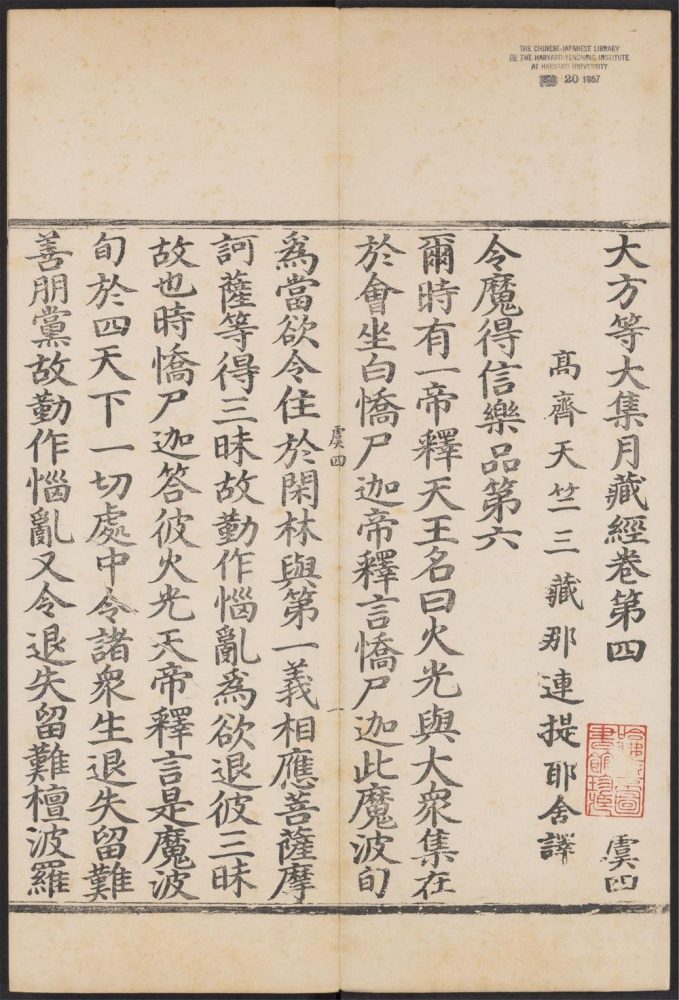 THE CHINESE-JAPANESE LIBRARY
OF THE HARVARD-YENCHING INSTITUTE
AT HARVARD UNIVERSITY
FEB 20 1957
大方等大集月藏經卷第四 虞四
高齊天竺三藏那連提耶舍譯
令魔得信樂品第六
爾時有一帝釋天王名曰火光與大衆集在
於會坐白憍尸迦帝釋言憍尸迦此魔波旬
虞四
爲當欲令住於閑林與第一義相應菩薩摩
訶薩等得三昧故勤作惱亂爲欲退彼三昧
故也時憍尸迦答彼火光天帝釋言是魔波
旬於四天下一切處中令諸衆生退失留難
善朋黨故勤作惱亂又令退失留難檀波羅